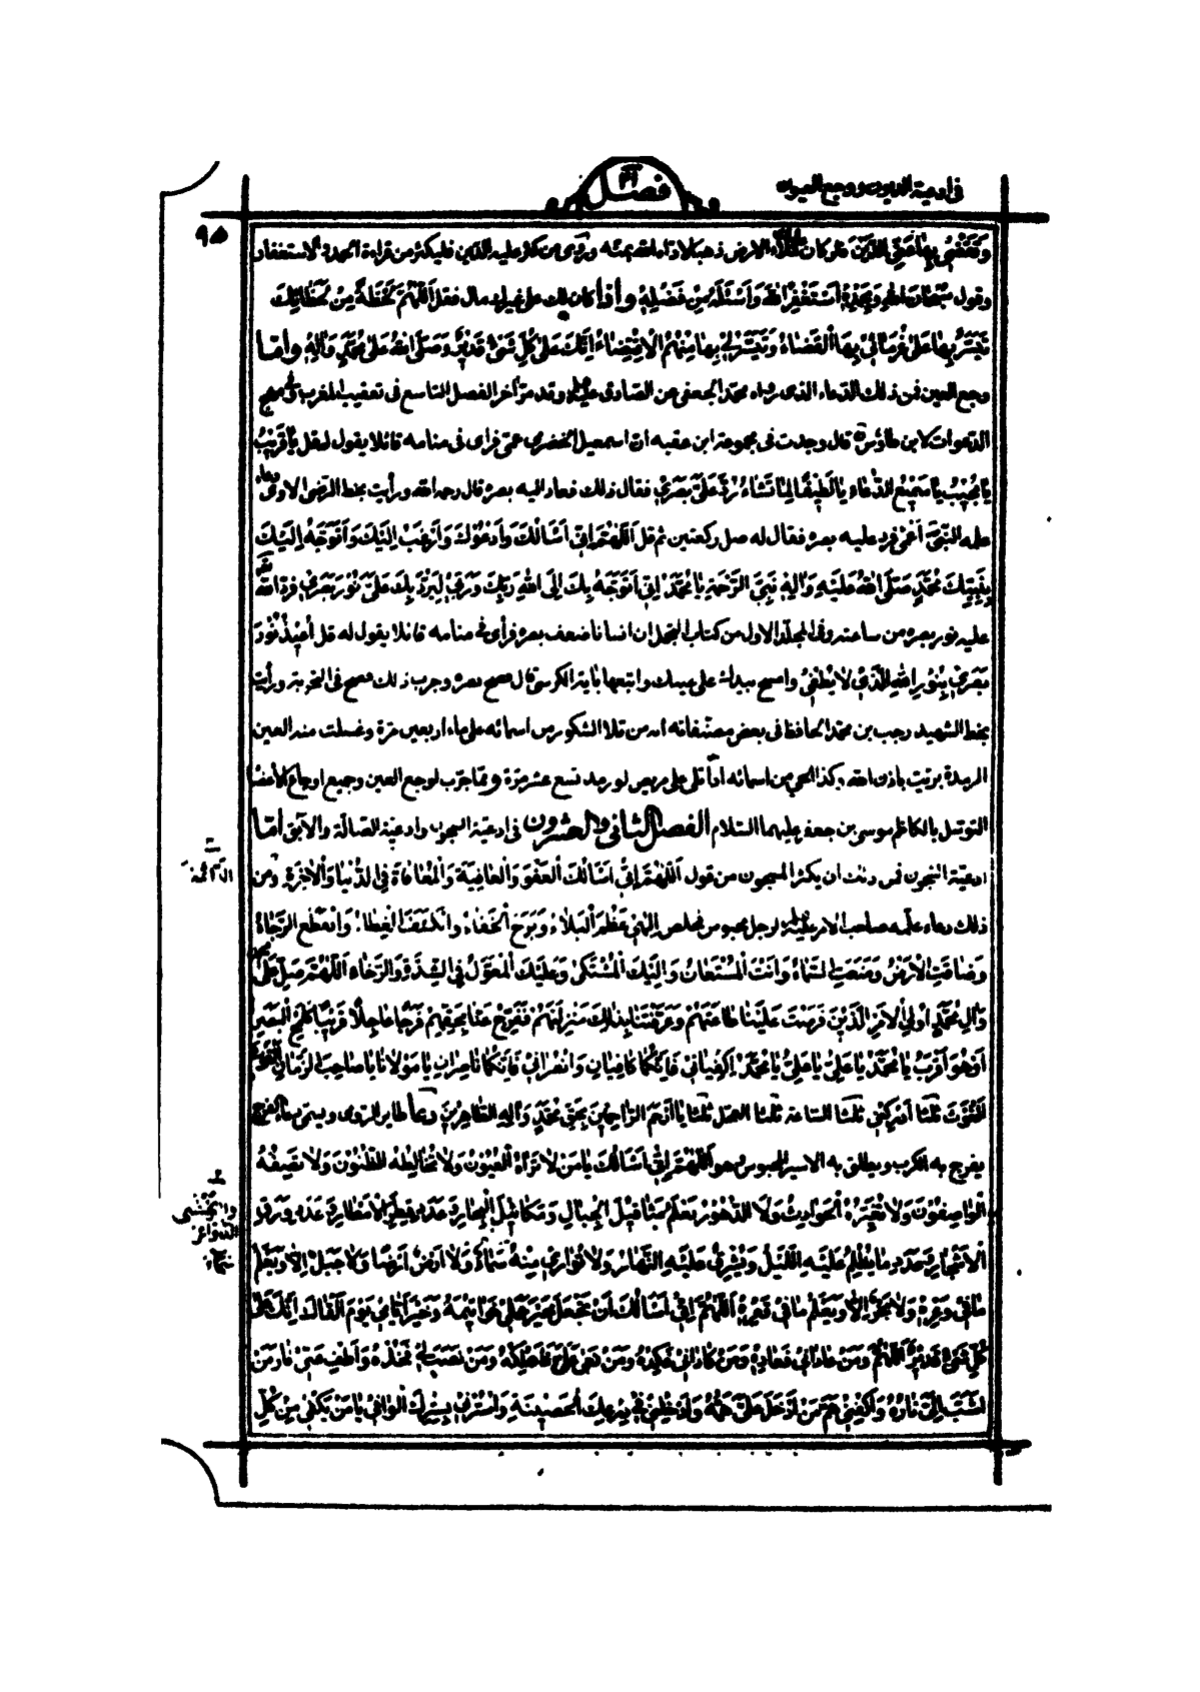 فى ادعية الديون ووجع العيون
فصل
٩٥
وتقضى بها عنى الدين فلو كان ملاء الارض ذهبا لاداه الله بمنه وروى من كثر عليه الدين فليكثر من قراءة الاستغفار
وقول سبحان الله وبحمده استغفر الله واسئله من فضله واذا كان لك على غيرك مال فقل اللهم لحظة من لحظاتك
تيسر بها على غرمائى بها القضاء وتيسر لى بها منهم الاقتضاء انك على كل شئ قدير وصلى الله على محمد واله واما
وجع العين فمن ذلك الدعاء الذى رواه محمد الجعفى عن الصادق عليه السلم وقد مر آخر الفصل التاسع فى تعقيب المغرب وفى مهج
الدعوات لابن طاوس ره قال وجدت فى مجموعة ابن عقبه ان اسمعيل الحضرمى عمى فراى فى منامه قائلا يقول له قل يا قريب
يا مجيب يا سميع الدعاء يا لطيفا لما تشاء رد على بصرى فقال ذلك فعاد اليه بصره قال رحمه الله ورأيت بخط الرضى الاوى دعاء
علمه النبى اعمى فرد عليه بصره فقال له صل ركعتين ثم قل اللهم انى اسالك وادعوك وارغب اليك واتوجه اليك
بنبيك محمد صلى الله عليه واله نبى الرحمة يا محمد انى اتوجه بك الى الله ربك وربى ليرد بك على نور بصرى فرد الله
عليه نور بصره من ساعته وفى المجلد الاول من كتاب التجمل ان انسانا ضعف بصره فرأى فى منامه قائلا يقول له قل اعيذ نور
بصرى بنور الله الذى لا يطفى وامسح بيدك على عينيك واتبعها باية الكرسى قال فصح بصره وجرب ذلك فصح فى التجربة ورأيت
بخط الشهيد رجب بن محمد الحافظ فى بعض مصنفاته انه من تلا الشكور من اسمائه على ماء اربعين مرة وغسلت منه العين
الرمدة برئت باذن الله وكذا الحى من اسمائه اذا تلى على مريض او رمد تسع عشر مرة ومما جرب لوجع العين وجميع اوجاع الاعضا
التوسل بالكاظم موسى بن جعفر عليهما السلام الفصل الثانى والعشرون فى ادعية المسجون وادعية الضالة والآبق اما
ادعية المسجون فمن ذلك ان يكثر المسجون من قول اللهم انى اسالك العفو والعافية والمعافاة فى الدنيا والاخرة ومن
ذلك دعاء علمه صاحب الامر عليه السلم لرجل محبوس فخلص الهى عظم البلاء وبرح الخفاء وانكشف الغطاء وانقطع الرجاء
وضاقت الارض ومنعت السماء وانت المستعان واليك المشتكى وعليك المعول فى الشدة والرخاء اللهم صل على محمد
وال محمد اولى الامر الذين فرضت علينا طاعتهم وعرفتنا بذلك منزلتهم ففرج عنا بحقهم فرجا عاجلا قريبا كلمح البصر
او هو اقرب يا محمد يا على يا على يا محمد اكفيانى فانكما كافيان وانصرانى فانكما ناصران يا مولانا يا صاحب الزمان الغوث
الغوث ثلثا ادركنى ثلثا الساعة ثلثا العجل ثلثا يا ارحم الراحمين بحق محمد واله الطاهرين دعا طاير الرومى ويسمى دعاء الفرج
يفرج به الكرب ويطلق به الاسير المحبوس وهو اللهم انى اسالك يا من لا تراه العيون ولا تخالطه الظنون ولا تصفه
الواصفون ولا تغيره الحوادث ولا الدهور يعلم مثاقيل الجبال ومكائيل البحار وعدد قطر الامطار وعدد ورق
الاشجار وعدد ما يظلم عليه الليل ويشرق عليه النهار ولا توارى منه سماء سماء ولا ارض ارضا ولا جبل الا ويعلم
ما فى وعره ولا بحر الا ويعلم ما فى قعره اللهم انى اسالك ان تجعل خير عملى خواتيمه وخير ايامى يوم القاك انك على
كل شئ قدير اللهم ومن عادانى فعاده ومن كادنى فكده ومن بغى على فاهلكه ومن نصب لى فخذه واطف عنى نار من
شب الى ناره واكفنى هم من ادخل على همه وادخلنى فى درعك الحصينة واسترنى بسترك الواقى يا من يكفى من كل